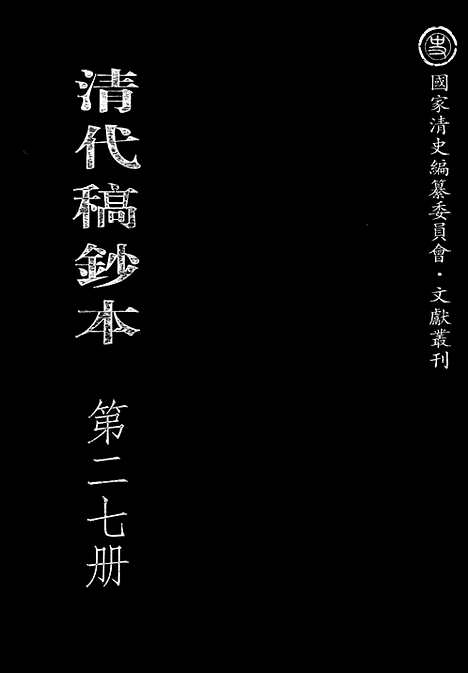 國家清史編纂委員會·文獻叢刊
清代稿鈔本 第二七册